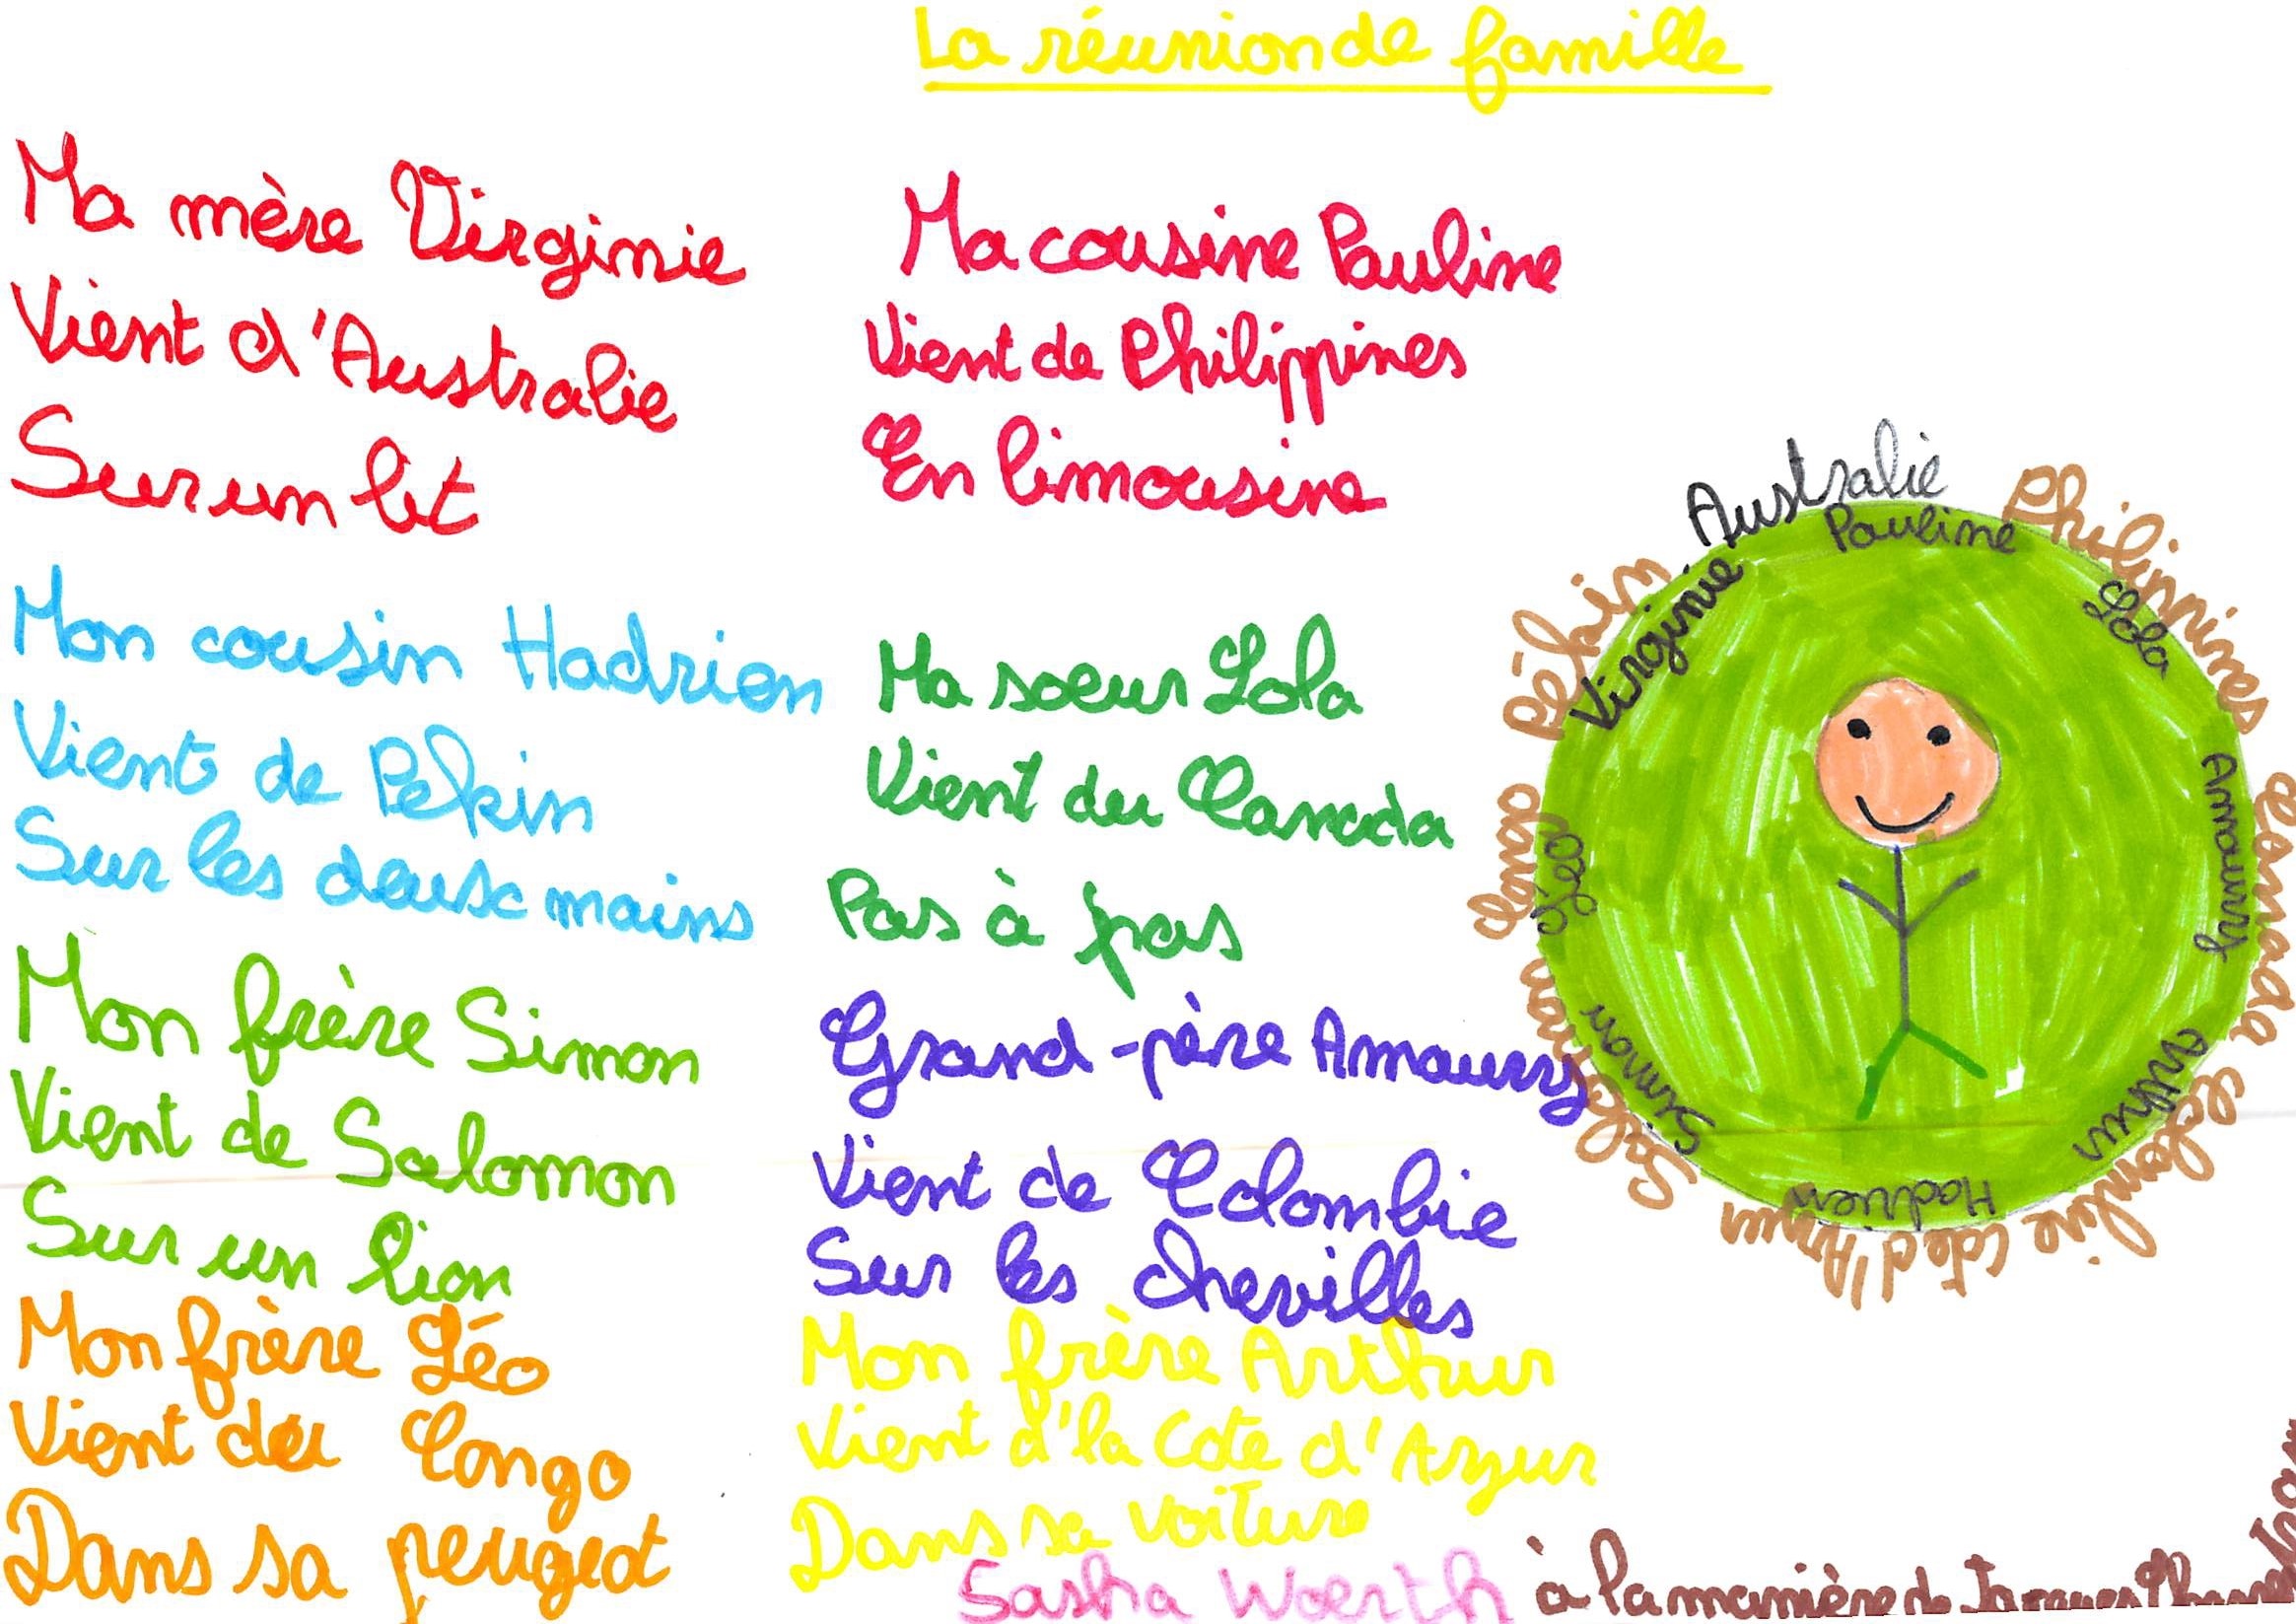 La réunion de famille
Ma mère Virginie
Vient d'Australie
Sur un lit
Mon cousin Hadrien
Vient de Pekin
Sur les deux mains
Mon frère Simon
Vient de Salomon
Sur un lion
Mon frère Léo
Vient du Congo
Dans sa peugeot
Ma cousine Pauline
Vient de Philippines
En limousine
Ma soeur Lola
Vient du Canada
Pas à pas
Grand-père Amaury
Vient de Colombie
Sur les chevilles
Mon frère Arthur
Vient d'la Cote d'Azur
Dans sa voiture
Sasha Woerth
à la manière de Jacques
Australie
Philippines
Canada
Colombie
Côte d'Azur
Salomon
Congo
Pékin
Pauline
Lola
Amaury
Arthur
Hadrien
Simon
Léo
Virginie